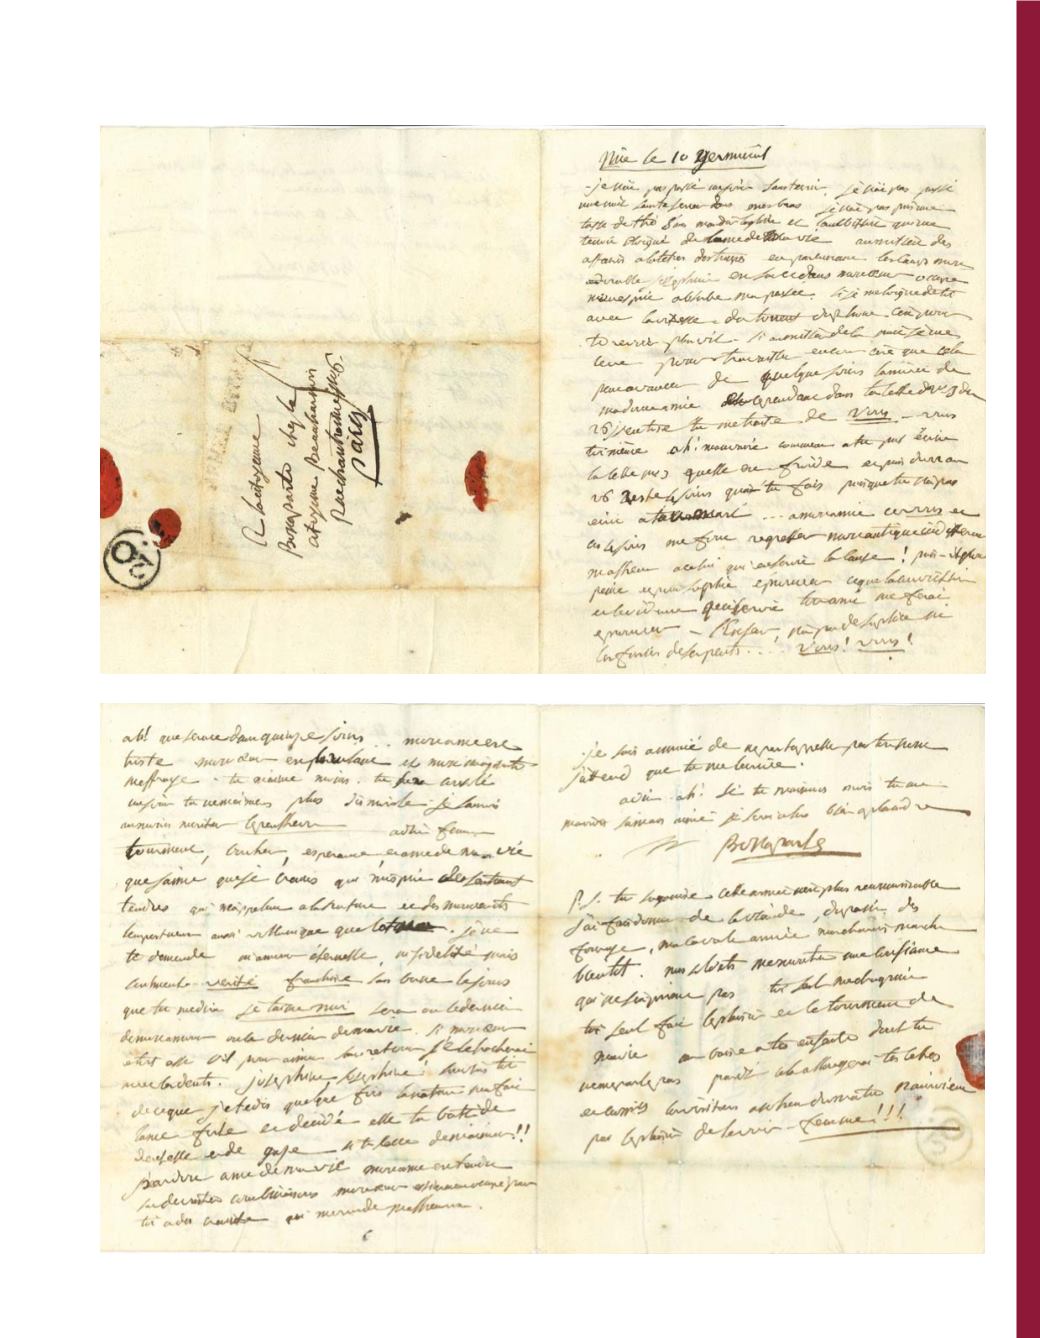 A la citoyenne
Bonaparte chez la
citoyenne Beauharnais
Rue chantereine n° 6
Paris
Nice le 10 germinal
je n'ai pas passé un jour sans je n'ai pas passé
une nuit sans te serrer dans mes bras je n'ai pas pris une
tasse de thé sans maudire la gloire et l'ambition qui me
tienne éloigné de l'ame de ma vie au milieu des
affaires a la tete des troupes en parcourant les camps mon
adorable josephine est seule dans mon cœur occupe
mon esprit absorbe ma pensée. si je m'eloigne de toi
avec la vitesse du torrent du rhone c'est pour
te revoir plus vite si au milieu de la nuit je me
leve pour travailler encore c'est que cela
peut avancer de quelque jours l'arrivée de
ma douce amie et cependant dans ta lettre du 23 au
26 ventose tu me traite de vous - vous
toi même ah! mauvaise comment a tu pu ecrire
cette lettre quelle est froide et puis du 23 au
26 reste 4 jours qu'a tu fais puisque tu n'a pas
ecrit a ton mari ... ah mon amie ce vous et
ces 4 jours me font regretter mon antique indifference
malheur a celui qui en seroit la cause! puisse-t-il pour
peine et pour suplice eprouver ce que la conviction
et l'evidence qui servit ton ami me feroit
eprouver - l'enfer n'a pas de suplice ni
les furies de serpents ... vous! vous!
ah! que sera ce dans quinze jours .. mon ame est
triste mon cœur est esclave et mon imagination
m'effraye - tu m'aime moins. tu seras consolé
un jour tu ne m'aimera plus dis moi le je saurai
au moins meriter le malheur adieu femme
tourment, bonheur, esperance et ame de ma vie
que j'aime que je crains qui m'inspire des sentiment
tendres qui m'appellent a la nature et des mouvements
impetueux aussi volcanique que le tonnerre. je ne
te demande ni amour éternelle, ni fidelité mais
seulement verité franchise sans borne le jour
que tu me dira je t'aime moins sera ou le dernier
de mon amour ou le dernier de ma vie. si mon cœur
etoit assé vil pour aimer sans retour je le hacherai
avec les dents. josephine josephine souviens toi
de ce que je t'ai dis quelque fois la nature m'a fait
l'ame forte et decidé elle t'a batie de
dentelle et de gaze a tu cessé de m'aimer!!
pardon ame de ma vie mon ame est tendue
sur de vastes combinaisons mon cœur entierement occupé par
toi a des craintes qui me rende malheureux.
je suis ennuié de ne pas t'appeller par ton nom
j'attend que tu me l'ecrive.
adieu ah! si tu m'aime moins tu ne
m'aurois jamais aimé je serai alors bien a plaindre
Bonaparte
P.S. la guerre cette année n'est plus reconnoissable
j'ai fait donner de la viande, du pain, des
fourage, ma cavalerie armée marchera
bientot. mes soldats me montrent une confiance
qui ne s'exprime pas toi seul me chagrine
toi seul fait le plaisir et le tourment de
ma vie un baiser a tes enfants dont tu
ne me parle pas pardi cela allongeroit tes lettres
de moitié les visiteurs a dix heures du matin n'auroient
pas le plaisir de te voir - femme!!!